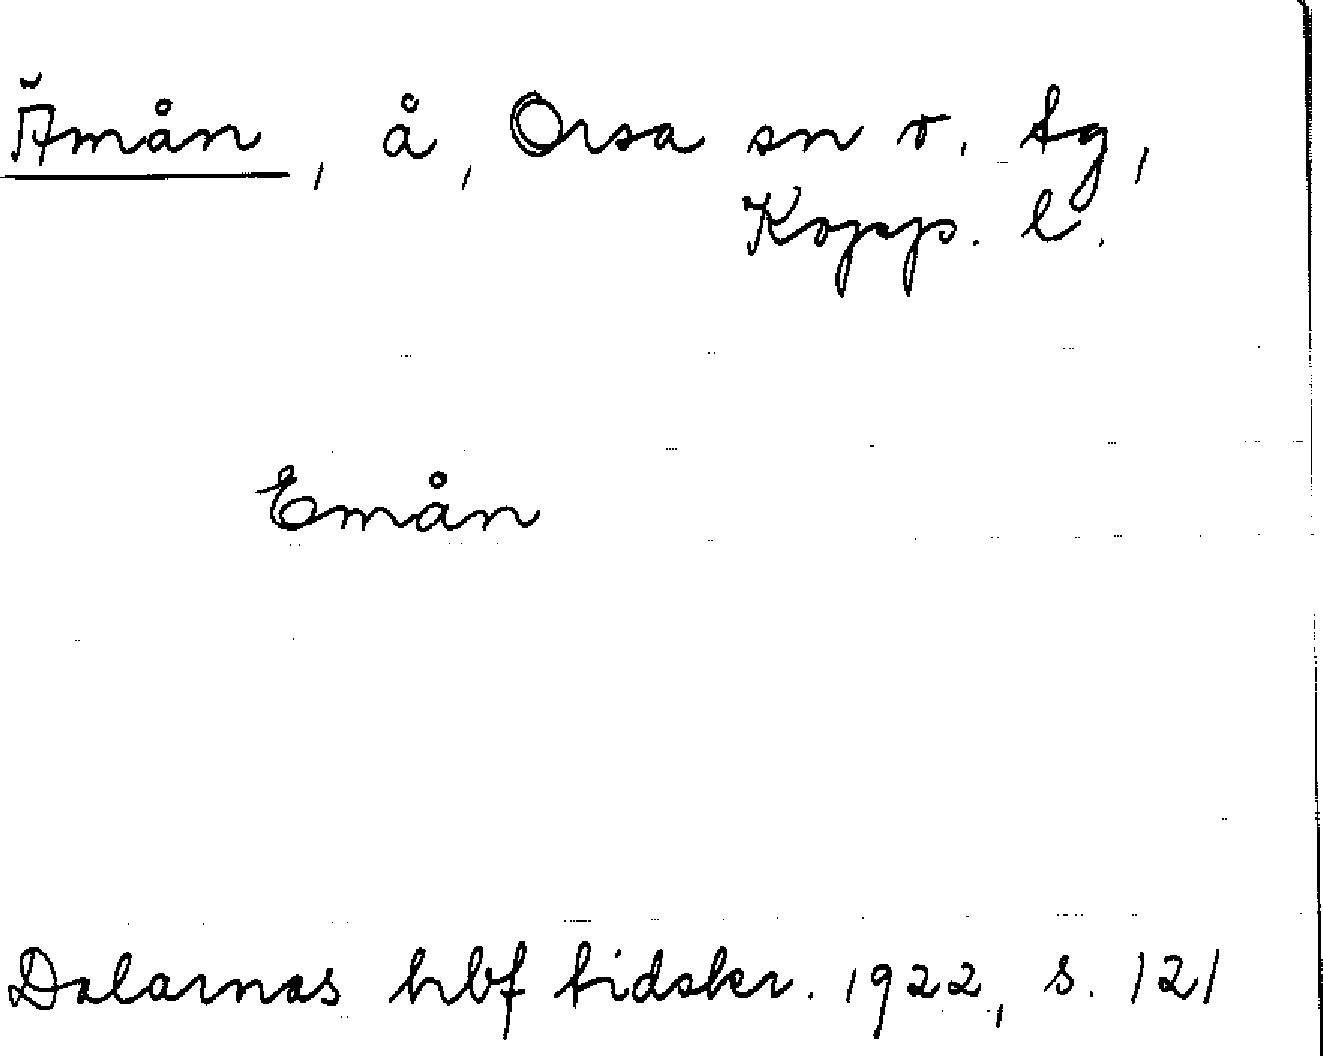 Ämån, å, Orsa sn o. tg,
Kopp. l.
Emån
Dalarnas hbf tidskr. 1922, s. 121